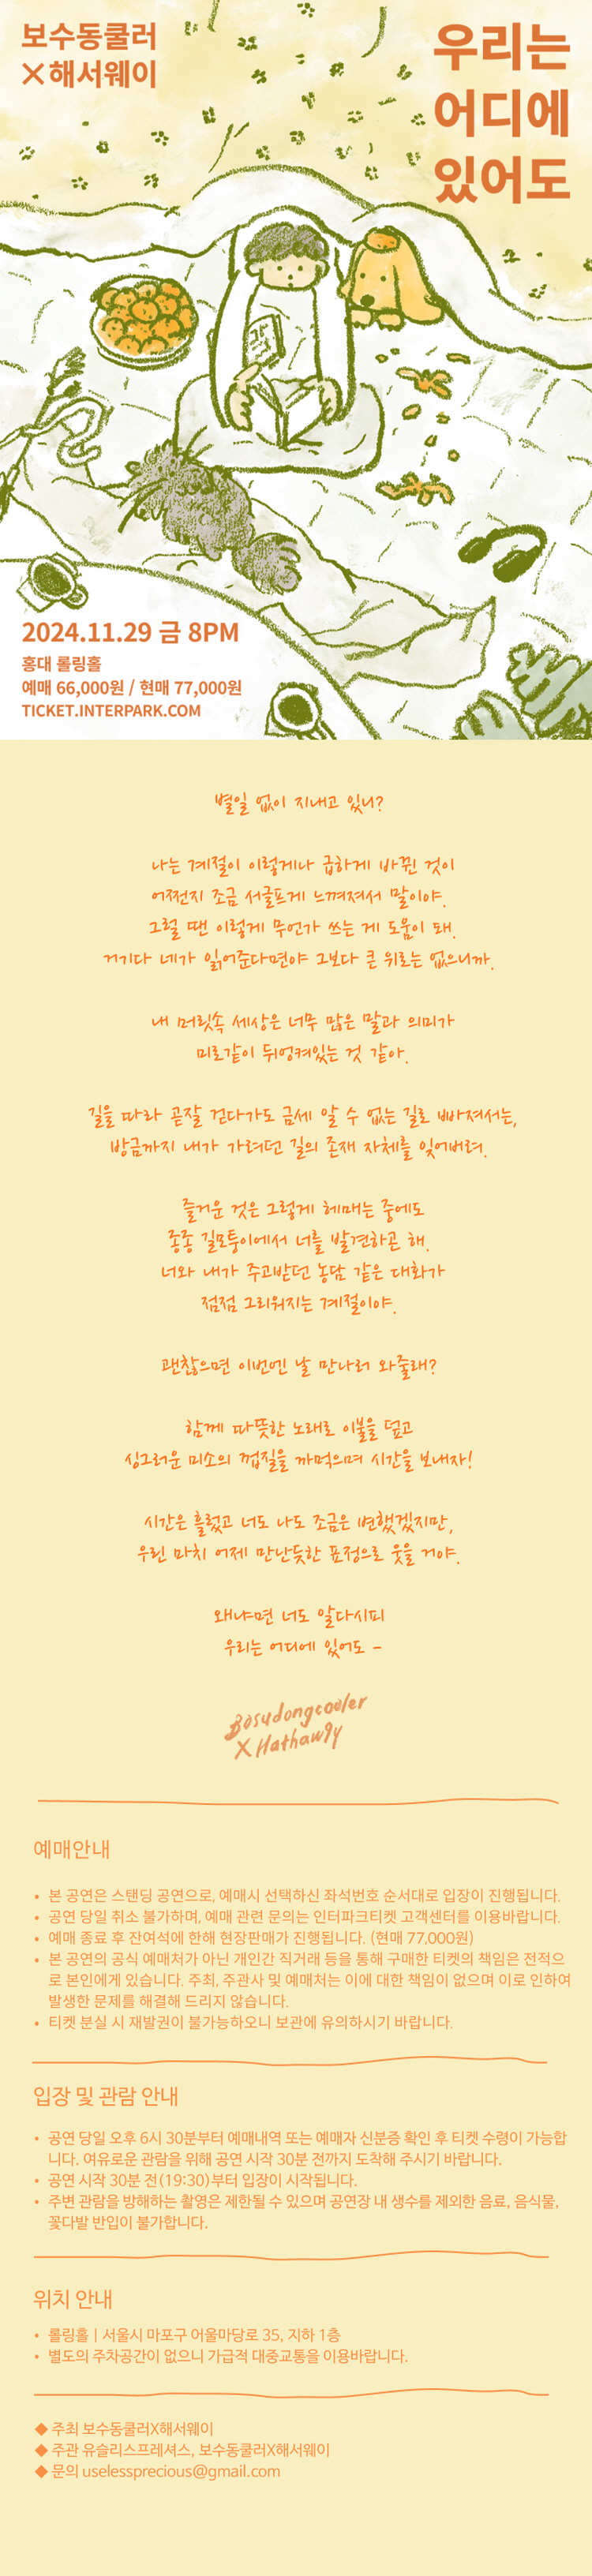 보수동쿨러
×해서웨이
우리는
어디에
있어도
2024.11.29 금 8PM
홍대 롤링홀
예매 66,000원 / 현매 77,000원
TICKET.INTERPARK.COM
별일 없이 지내고 있니?
나는 계절이 이렇게나 급하게 바뀐 것이
어쩐지 조금 서글프게 느껴져서 말이야.
그럴 땐 이렇게 무언가 쓰는 게 도움이 돼.
거기다 네가 읽어준다면야 그보다 큰 위로는 없으니까.
내 머릿속 세상은 너무 많은 말과 의미가
미로같이 뒤엉켜있는 것 같아.
길을 따라 곧잘 걷다가도 금세 알 수 없는 길로 빠져서는,
방금까지 내가 가려던 길의 존재 자체를 잊어버려.
즐거운 것은 그렇게 헤매는 중에도
종종 길모퉁이에서 너를 발견하곤 해.
너와 내가 주고받던 농담 같은 대화가
점점 그리워지는 계절이야.
괜찮으면 이번엔 날 만나러 와줄래?
함께 따뜻한 노래로 이불을 덮고
싱그러운 미소의 껍질을 까먹으며 시간을 보내자!
시간은 흘렀고 너도 나도 조금은 변했겠지만,
우린 마치 어제 만난듯한 표정으로 웃을 거야.
왜냐면 너도 알다시피
우리는 어디에 있어도 -
Bosudongcooler
X Hathaw9y
예매안내
• 본 공연은 스탠딩 공연으로, 예매시 선택하신 좌석번호 순서대로 입장이 진행됩니다.
• 공연 당일 취소 불가하며, 예매 관련 문의는 인터파크티켓 고객센터를 이용바랍니다.
• 예매 종료 후 잔여석에 한해 현장판매가 진행됩니다. (현매 77,000원)
• 본 공연의 공식 예매처가 아닌 개인간 직거래 등을 통해 구매한 티켓의 책임은 전적으
로 본인에게 있습니다. 주최, 주관사 및 예매처는 이에 대한 책임이 없으며 이로 인하여
발생한 문제를 해결해 드리지 않습니다.
• 티켓 분실 시 재발권이 불가능하오니 보관에 유의하시기 바랍니다.
입장 및 관람 안내
• 공연 당일 오후 6시 30분부터 예매내역 또는 예매자 신분증 확인 후 티켓 수령이 가능합
니다. 여유로운 관람을 위해 공연 시작 30분 전까지 도착해 주시기 바랍니다.
• 공연 시작 30분 전(19:30)부터 입장이 시작됩니다.
• 주변 관람을 방해하는 촬영은 제한될 수 있으며 공연장 내 생수를 제외한 음료, 음식물,
꽃다발 반입이 불가합니다.
위치 안내
• 롤링홀 | 서울시 마포구 어울마당로 35, 지하 1층
• 별도의 주차공간이 없으니 가급적 대중교통을 이용바랍니다.
◆ 주최 보수동쿨러X해서웨이
◆ 주관 유슬리스프레셔스, 보수동쿨러X해서웨이
◆ 문의 uselessprecious@gmail.com